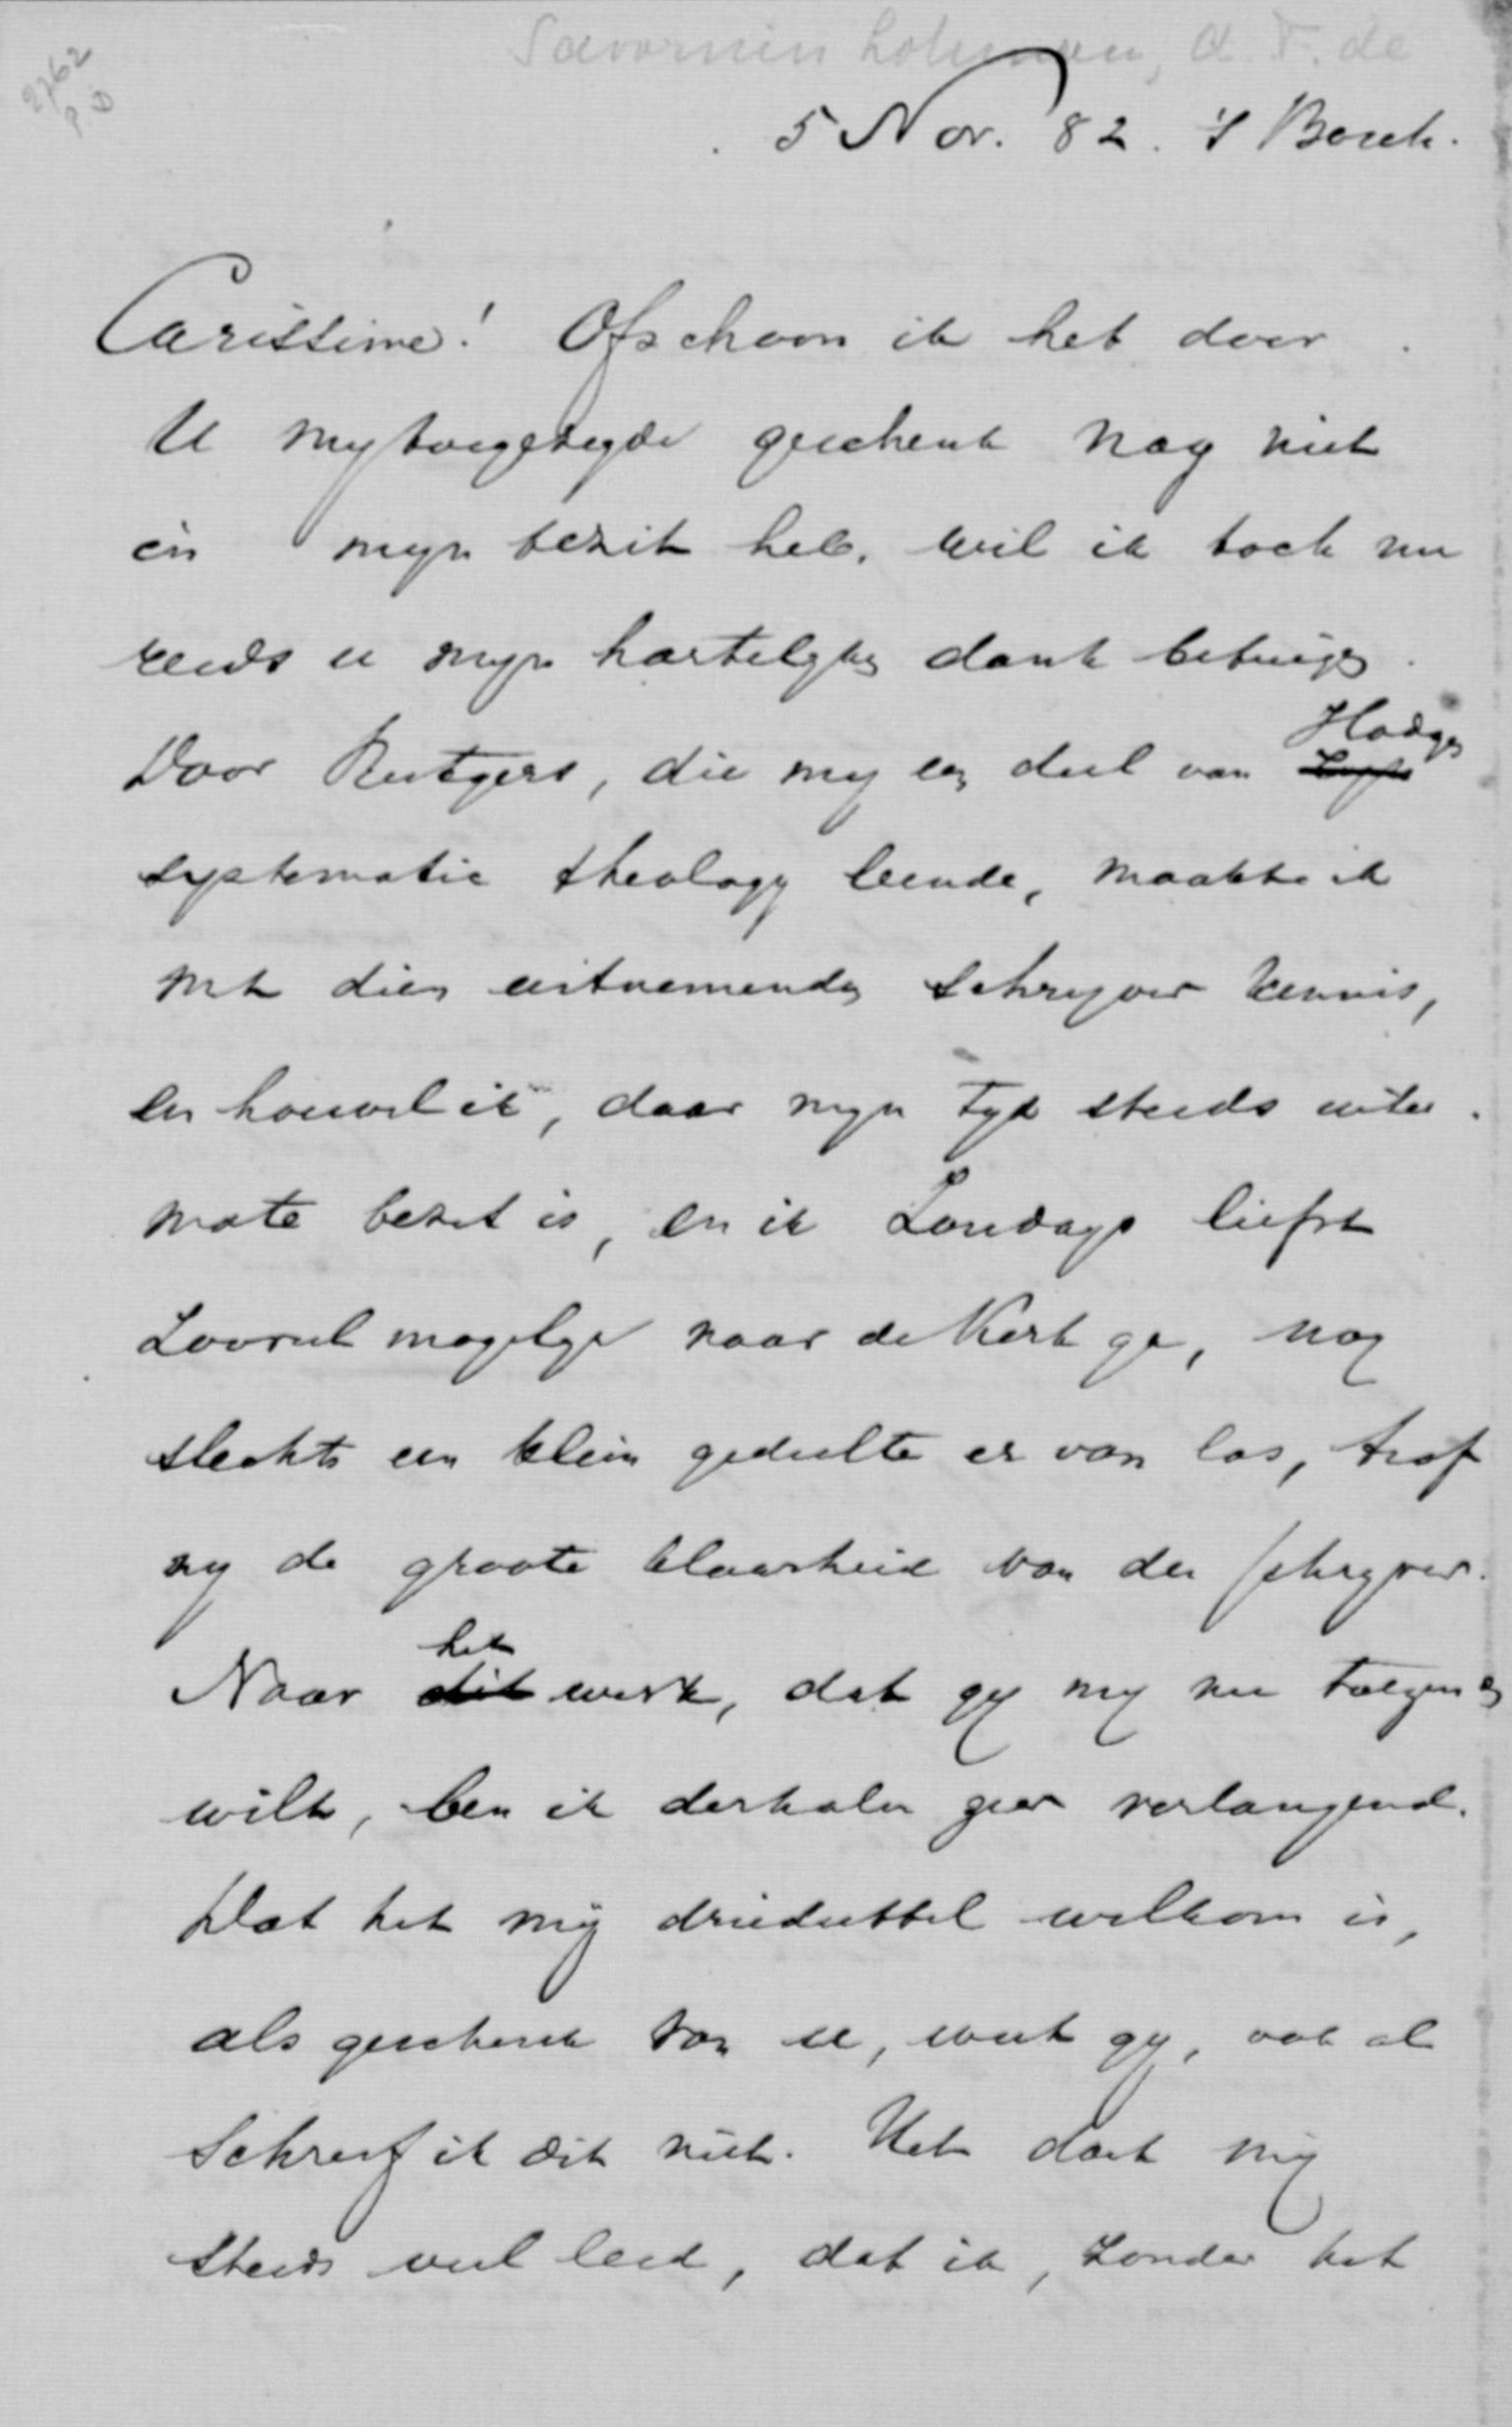 Savornin Lohman, A. F. de
2762
P D
5 Nov. 82. 's Bosch.
Carissime! Ofschoon ik het door
U mij toegezegde geschenk nog niet
in mijn bezit heb, wil ik toch nu
reeds u mijn hartelijken dank betuigen.
Door Rutgers, die mij een deel van Hodges
systematic theology leende, maakte ik
met dien uitnemenden schrijver kennis,
en hoewel ik, daar mijn tijd steeds uiter
mate bezet is, en ik Zondags liefst
zooveel mogelijk naar de Kerk ga, nog
slechts een klein gedeelte er van las, trof
mij de groote klaarheid van den schrijver.
Naar het werk, dat gij mij nu toezenden
wilt, ben ik derhalve zeer verlangend.
Dat het mij driedubbel welkom is,
als geschenk van u, weet gij, ook al
schreef ik dit niet. Het doet mij
steeds veel leed, dat ik, zonder het